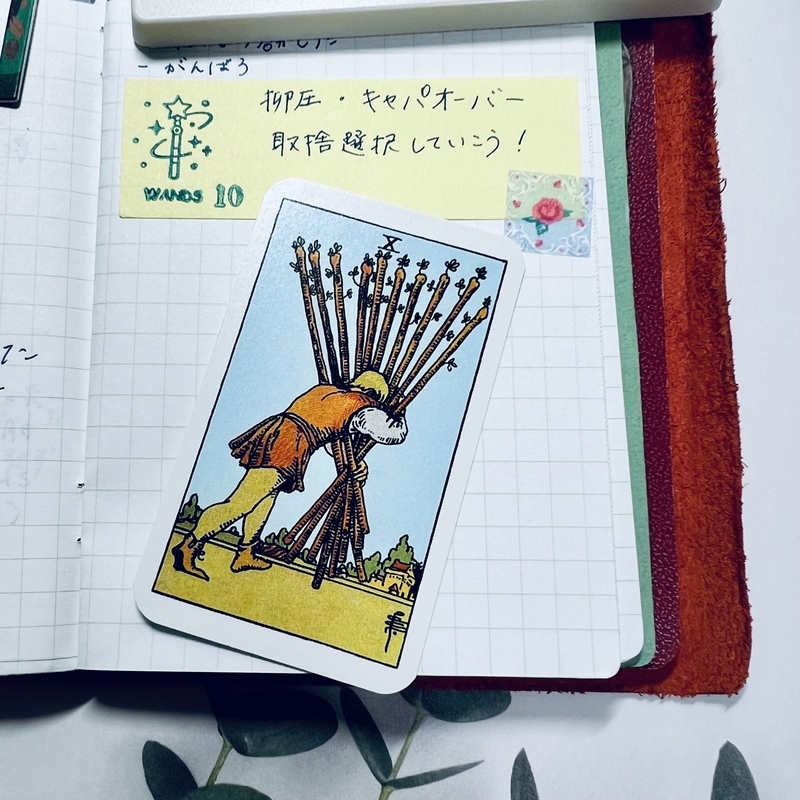 - がんばろ
抑圧・キャパオーバー
取捨選択していこう!
WANDS 10
X